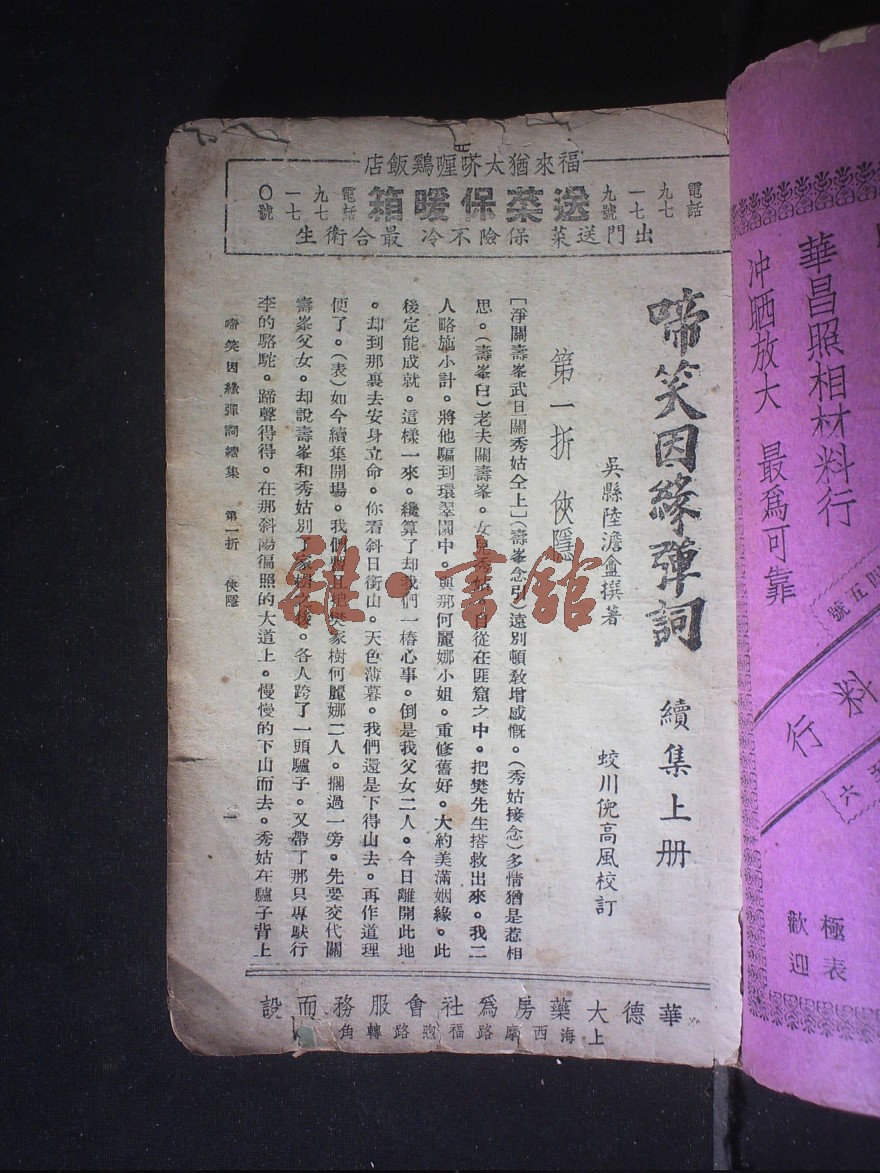 福來猶太咖喱鷄飯店
電話
九七
一七
九號
送菜保暖箱
電話
九七
一七
〇號
出門送菜 保險不冷 最合衛生
啼笑因緣彈詞 續集上册
吳縣陸澹盦撰著 蛟川倪高風校訂
第一折 俠隱
[淨關壽峯武旦關秀姑仝上](壽峯念引)遠別頓敎增感慨。(秀姑接念)多情猶是惹相
思。(壽峯白)老夫關壽峯。女兒秀姑。 日從在匪窟之中。把樊先生搭救出來。我二
人略施小計。將他騙到環翠園中。與那何麗娜小姐。重修舊好。大約美滿姻緣。此
後定能成就。這樣一來。纔算了却我們一樁心事。倒是我父女二人。今日離開此地
。却到那裏去安身立命。你看斜日銜山。天色薄暮。我們還是下得山去。再作道理
便了。(表)如今續集開場。我們暫且把樊家樹何麗娜二人。擱過一旁。先要交代關
壽峯父女。却說壽峯和秀姑別了家樹之後。各人跨了一頭驢子。又帶了那只專馱行
李的駱駝。蹄聲得得。在那斜陽徧照的大道上。慢慢的下山而去。秀姑在驢子背上
啼笑因緣彈詞續集 第一折 俠隱 一
華德大藥房爲社會服務而設
上海西摩路福煦路轉角
雜·書館
華昌照相材料行
沖晒放大 最爲可靠
四五號
料行
六
極表
歡迎